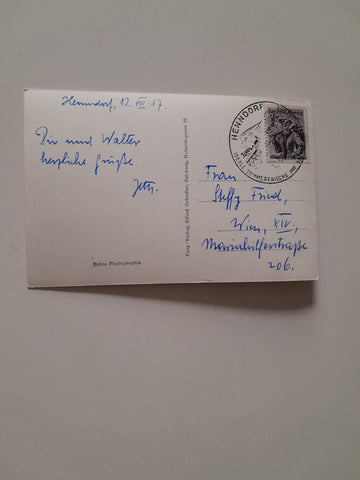 Henndorf, 12. VIII. 57.
Dir und Walter
herzliche Grüße.
HENNDORF
IDEALE SOMMERFRISCHE
Frau
Steffy Fried,
Wien, XIV,
Mariahilferstraße
206.
Cosy-Verlag, Alfred Gründler, Salzburg,
Echte Photographie